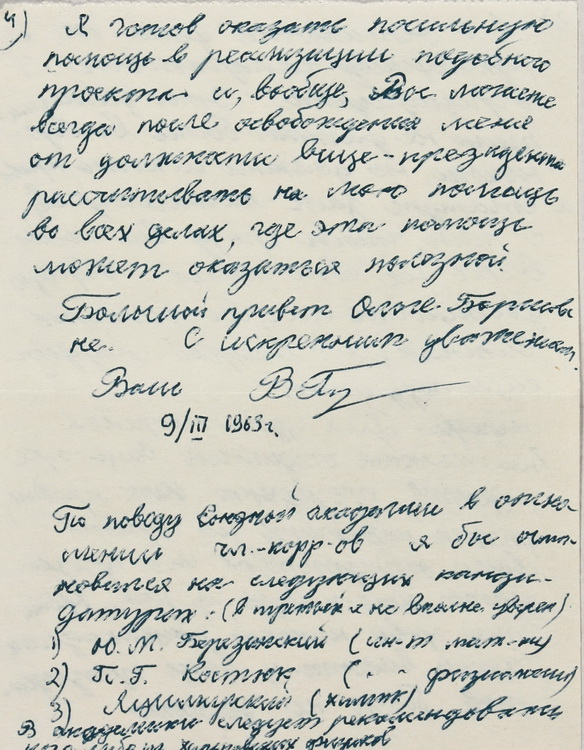 4)
Я готов оказать посильную
помощь в реализации подобного
проекта и, вообще, Вы можете
всегда после освобождения меня
от должности вице-президента
рассчитывать на мою помощь
во всех делах, где эта помощь
может оказаться полезной.
Большой привет Ольге Борисов-
не. С искренним уважением.
Ваш
9/III 1963г.
По поводу Союзной академии в отно-
шении чл.-корр-ов я бы оста-
новился на следующих канди-
датурах: (в третьей я не вполне уверен)
1) Ю.М. Березанский (ин-т мат-ки)
2) П.Г. Костюк (-"- физиологии)
3) (химик)
В академики следует рекомендовать
кого-либо из харьковских физиков